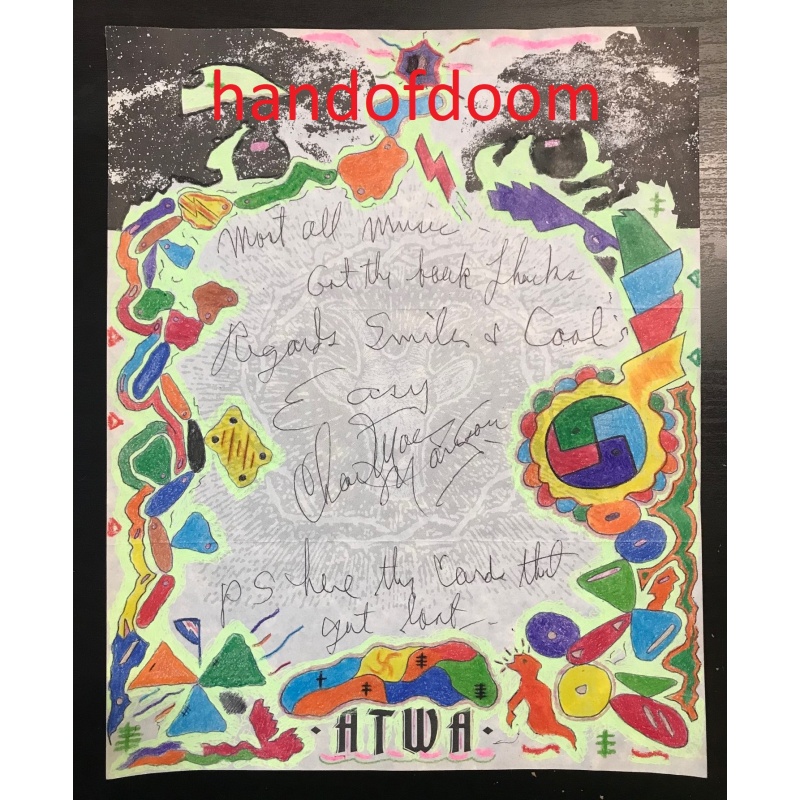 handofdoom
Most all music -
Got the book Thanks
Regards Smiles & Cool's
Easy
Manson
PS here the Cards that
got lost -
· ATWA ·